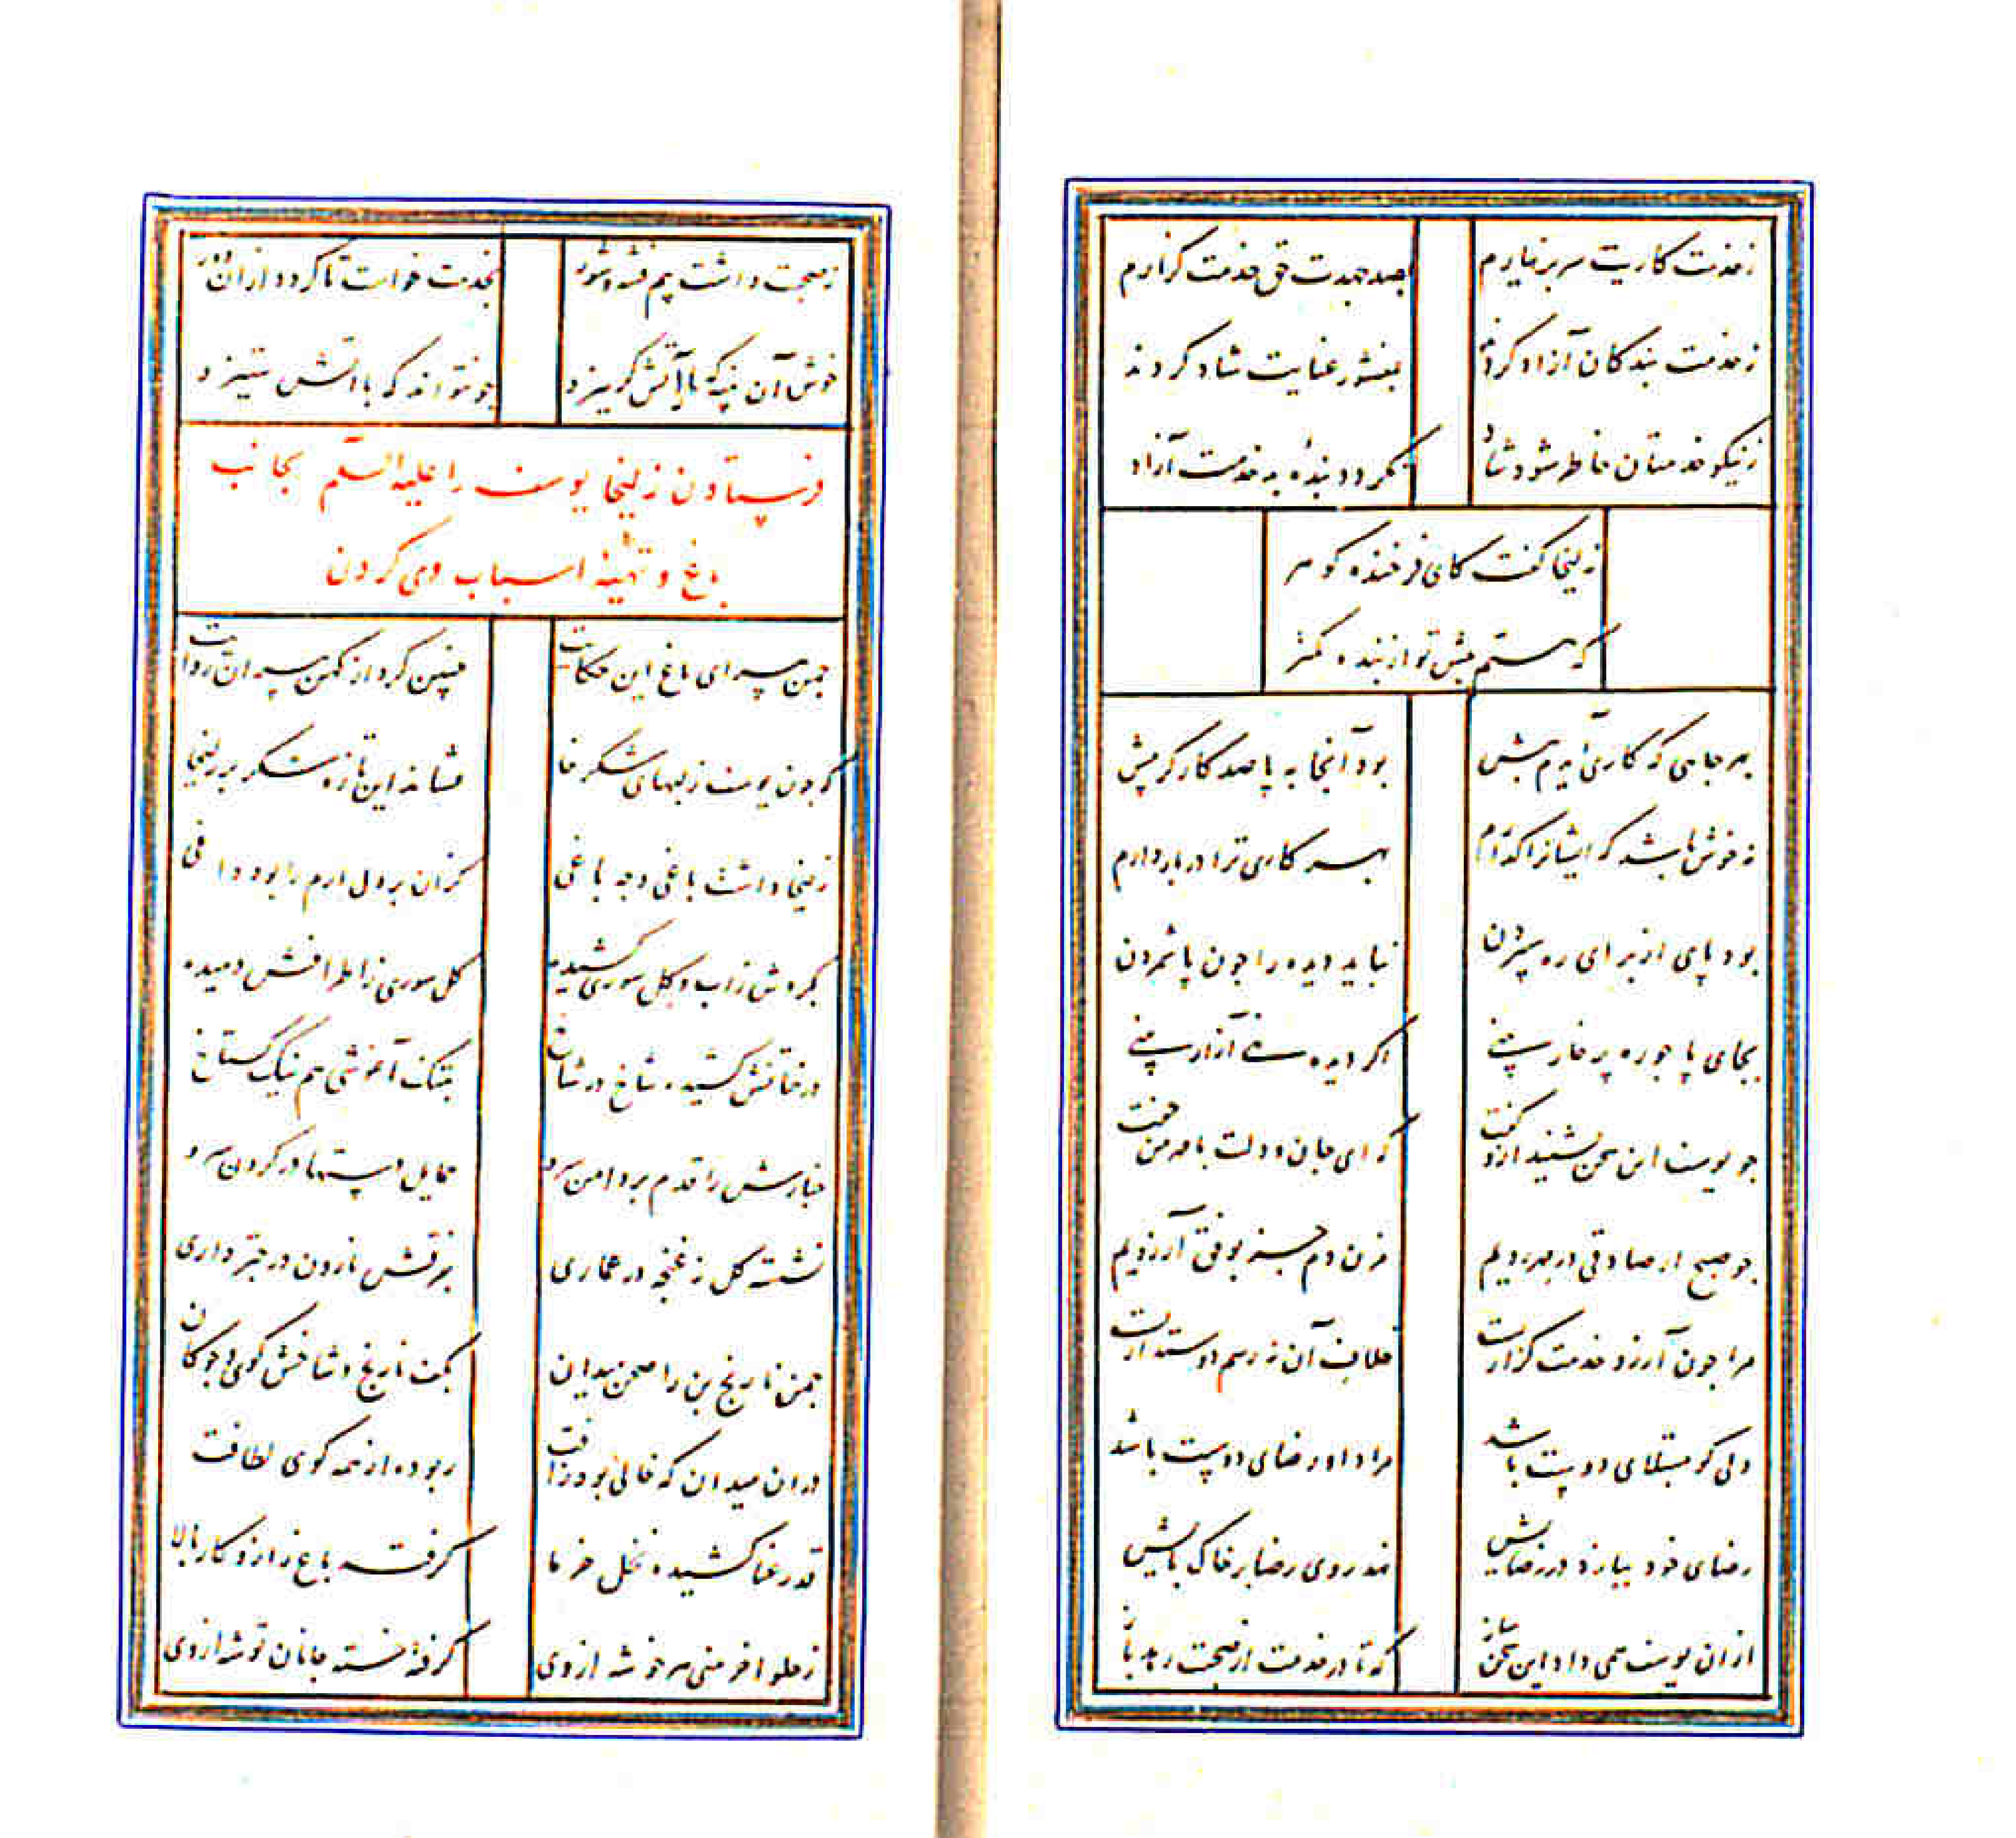 ز خدمت کاریت سر بر نیارم بصد جهدت حق خدمت گزارم
ز خدمت بندگان آزاد گردند بمنشور عنایت شاد گردند
ز نیکو خدمتان خاطر شود شاد نگردد بنده بد خدمت آزاد
زلیخا گفت کای فرخنده گوهر
که هستم پیش تو از بنده کمتر
بهر جایی که کاری آیدم پیش بود آنجا به پا صد کارگر پیش
نه خوش باشد که ایشانرا گذارم بهر کاری ترا در بار دارم
بود پای از برای ره سپردن نباید دیده را چون پا شمردن
بجای پا چو ره پر خار بینی اگر دیده نهی آزار بینی
چو یوسف این سخن بشنید ازو گفت که ای جان و دلت با مهر من جفت
چو صبح ار صادقی در مهر رویم مزن دم جز بوفق آرزویم
مرا چون آرزو خدمت گزاریست خلاف آن نه رسم دوستداریست
دلی کو مبتلای دوست باشد مراد او رضای دوست باشد
رضای خود ببازد در رضایش نهد روی رضا بر خاک پایش
ازان یوسف همی داد این سخن ساز که تا در خدمت از صحبت رهد باز
ز صحبت داشت بیم فتنه و شور بخدمت خواست تا گردد ازان دور
خوش آن پنبه که با آتش گریزد چو نتواند که با آتش ستیزد
فرستادن زلیخا یوسف را علیه السلم بجانب
باغ و تهیه اسباب وی کردن
چمن پیرای باغ این حکایت چنین کرد از کهن پیران روایت
که چون یوسف ز لبهای شکرخا فشاند این تازه شکر بر زلیخا
زلیخا داشت باغی و چه باغی کزان بر دل ارم را بود داغی
بگردش ز آب و گل سوری کشیده گل سوری ز اطرافش دمیده
درختانش کشیده شاخ در شاخ بتنگ آغوشی هم نیک گستاخ
چنارش را قدم بر دامن سرو حمایل دستها در گردن سرو
نشسته گل ز غنچه در عماری بفرقش نارون در چتر داری
چمن نارنج بن را صحن میدان بکف نارنج و شاخش گوی و چوگان
دران میدان که خالی بود ز آفت ربوده از همه گوی لطافت
قد رعنا کشیده نخل خرما گرفته باغ را زو کار بالا
ز حلوا خرمنی هر خوشه از وی گرفته خسته جانان توشه از وی